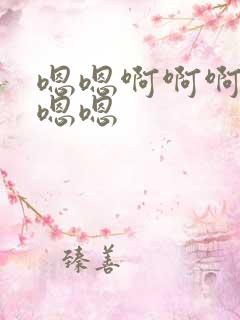 嗯嗯啊啊啊
嗯嗯
臻善